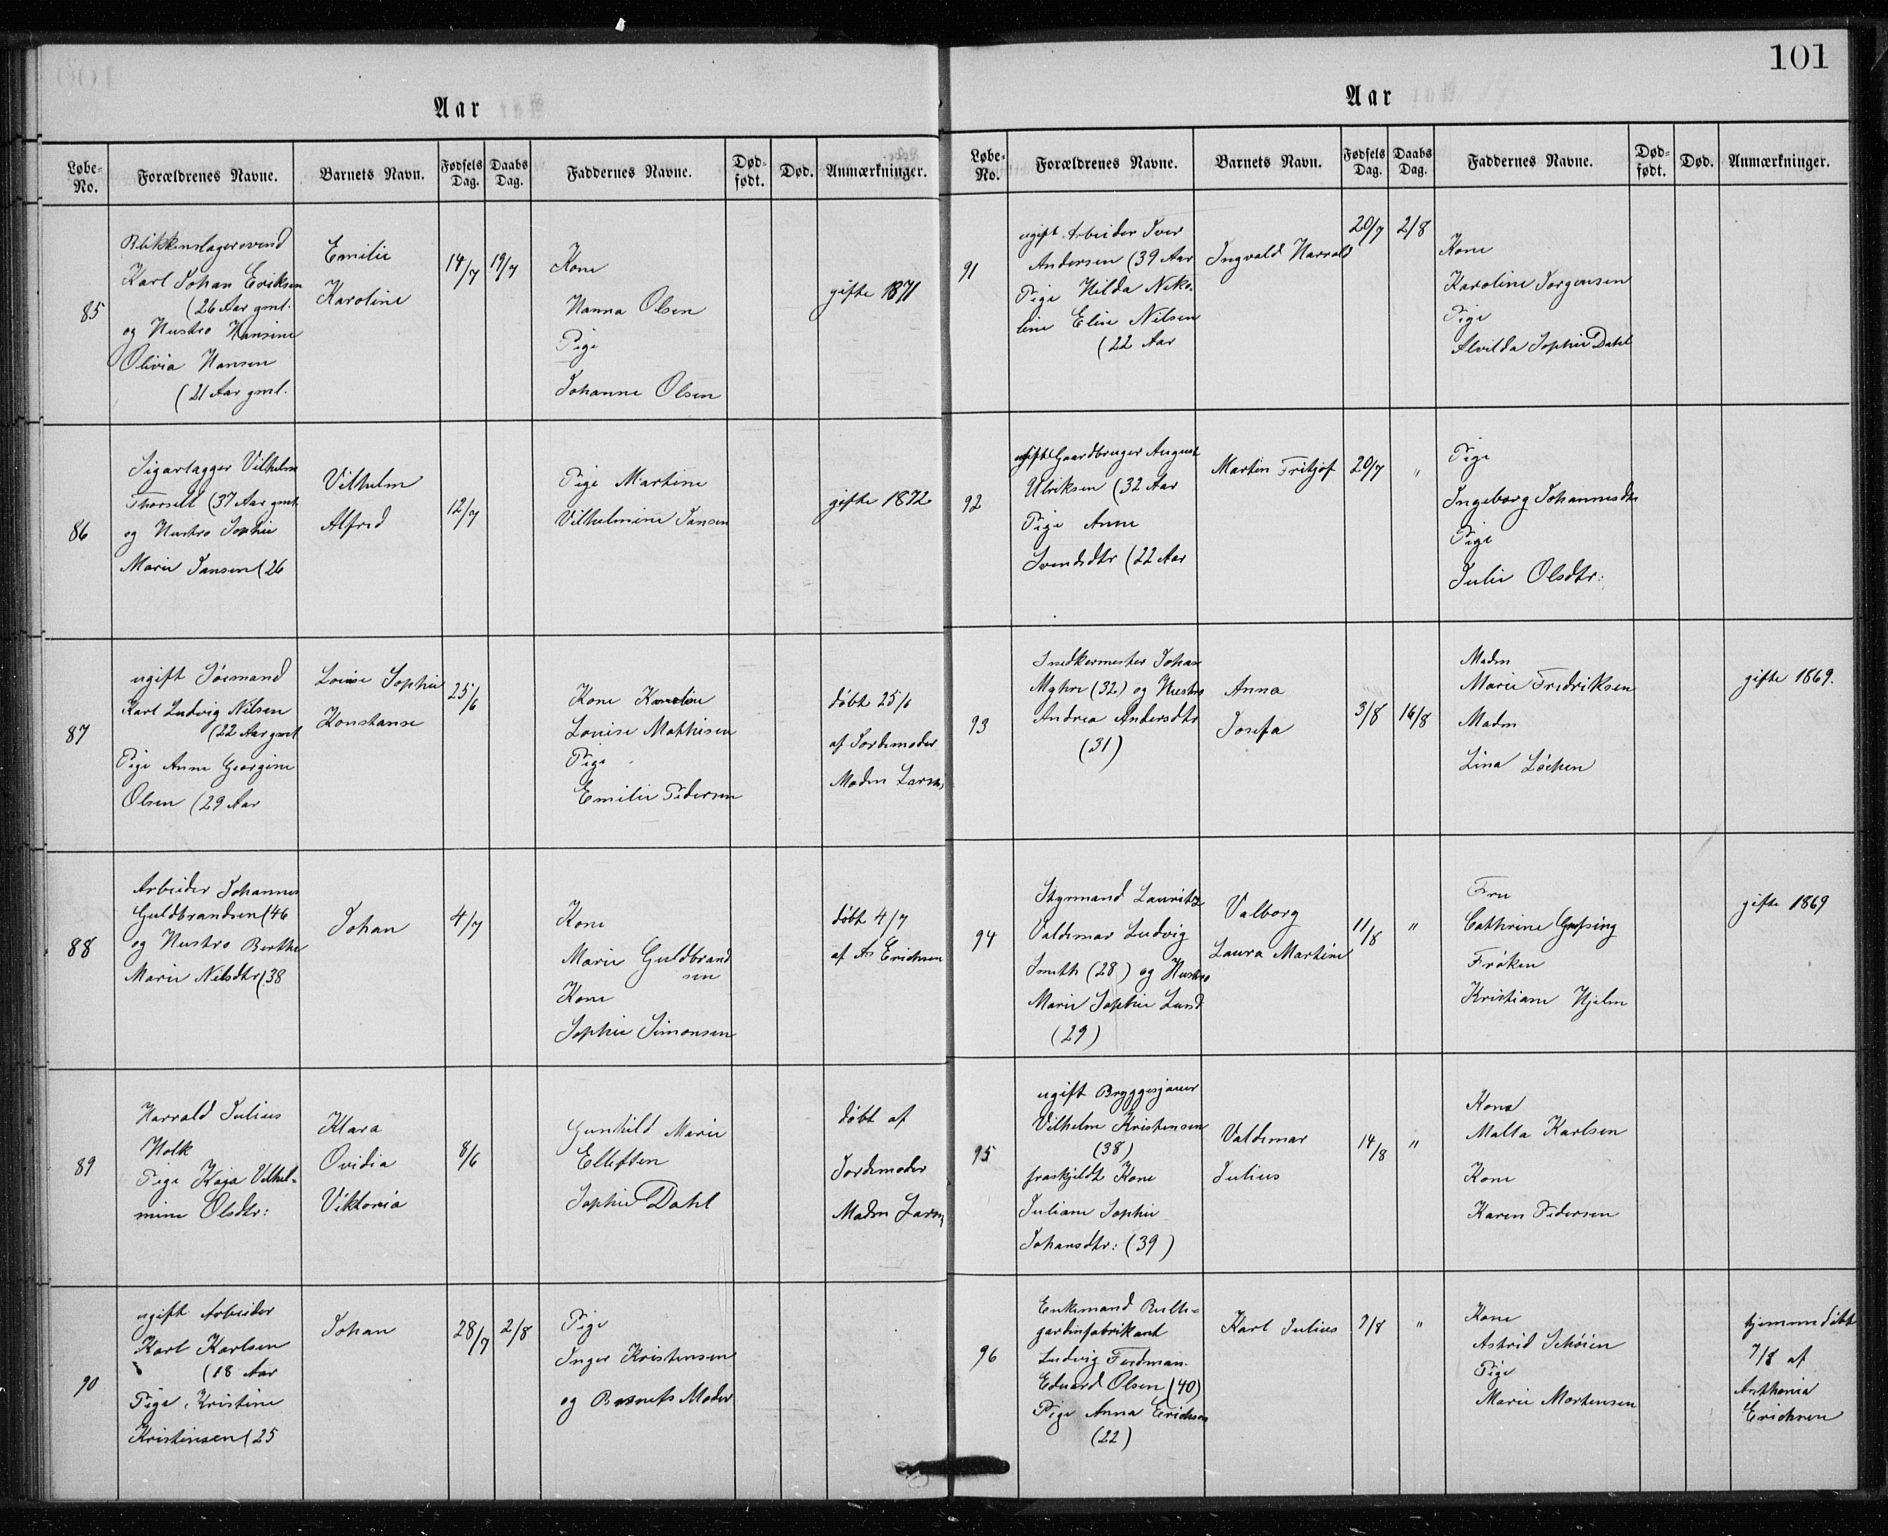 Aar
Løbe-No. Forældrenes Navne. Barnets Navn. Fødsels Dag. Daabs Dag. Faddernes Navne. Død-født. Død. Anmærkninger.
85
Blikkenslagersvend
Karl Johan Eriksen
(26 Aar gml.
og Hustro Hansine
Olivia Hansen
(21 Aar gml.
Emilie
Karoline
14/7
19/7
Kone
Hanna Olsen
Pige
Johanne Olsen
gifte 1871
86
Sigarlagger Vilhelm
(37 Aar gml.
og Hustro Sophie
Marie Jansen (26
Vilhelm
Alfred
12/7
Pige Martine
Vilhelmine Jansen
gifte 1872
87
ugift Sømand
Karl Ludvig Nilsen
(22 Aar gml
Pige Anne Georgine
Olsen (29 Aar
Louise Sophie
Konstanse
25/6
Kone Karoline
Louise Mathisen
Pige
Emilie Pedersen
døbt 25/6
af Jordemoder
Madm Larsen
88
Arbeider Johannes
Guldbrandsen (46
og Hustro Berthe
Marie Nilsdtr (38
Johan
4/7
Kone
Marie Guldbrand
sen
Kone
Sophie Simonsen
døbt 4/7
af As Erichsen
89
Harrald Julius
Holk
Pige Kaja Vilhel-
mine Olsdtr:
Klara
Ovidia
Viktoria
8/6
Gunhild Marie
Ellefsen
Sophie Dahl
døbt af
Jordemoder
Madm Larsen
90
ugift Arbeider
Karl Karlsen
(18 Aar
Pige Kristine
Kristensen (25
Johan
28/7
2/8
Pige
Inger Kristensen
og Barnets Moder
101
Aar
Løbe-No. Forældrenes Navne. Barnets Navn. Fødsels Dag. Daabs Dag. Faddernes Navne. Død-født. Død. Anmærkninger.
91
ugift Arbeider Iver
Andersen (39 Aar
Pige Hilda Niko-
line Elise Nilsen
(22 Aar
Ingvald Harrald
20/7
2/8
Kone
Karoline Jørgensen
Pige
Alvilda Sophie Dahl
92
ugift Gaardbruger August
Ulriksen (32 Aar
Pige Anne
Svendsdtr (22 Aar
Martin Fritjof
20/7
"
Pige
Ingeborg Johannesdtr
Pige
Julie Olsdtr:
93
Snedkermester Johan
(32) og Hustro
Andrea Andersdtr
(31)
Anna
Josefa
3/8
16/8
Madm
Marie Fredriksen
Madm
Lina Løchen
gifte 1869.
94
Styrmand Lauritz
Valdemar Ludvig
Smith (28) og Hustro
Marie Sophie Lund
(29)
Valborg
Laura Martine
11/8
"
Fru
Cathrine
Frøken
Kristiane Hjelm
gifte 1869
95
ugift Bryggesjauer
Vilhelm Kristensen
(38)
fraskjeldt Kone
Juliane Sophie
Johansdtr: (39)
Valdemar
Julius
14/8
"
Kone
Malla Karlsen
Kone
Karen Pedersen
96
Enkemand Rulle-
gardinfabrikant
Ludvig Ferdinan.
Eduard Olsen (40)
Pige Anna Erichsen
(22)
Karl Julius
7/8
"
Kone
Astrid Schøien
Pige
Marie Mortensen
hjemmedøbt
7/8 af
Anthonia
Erichsen